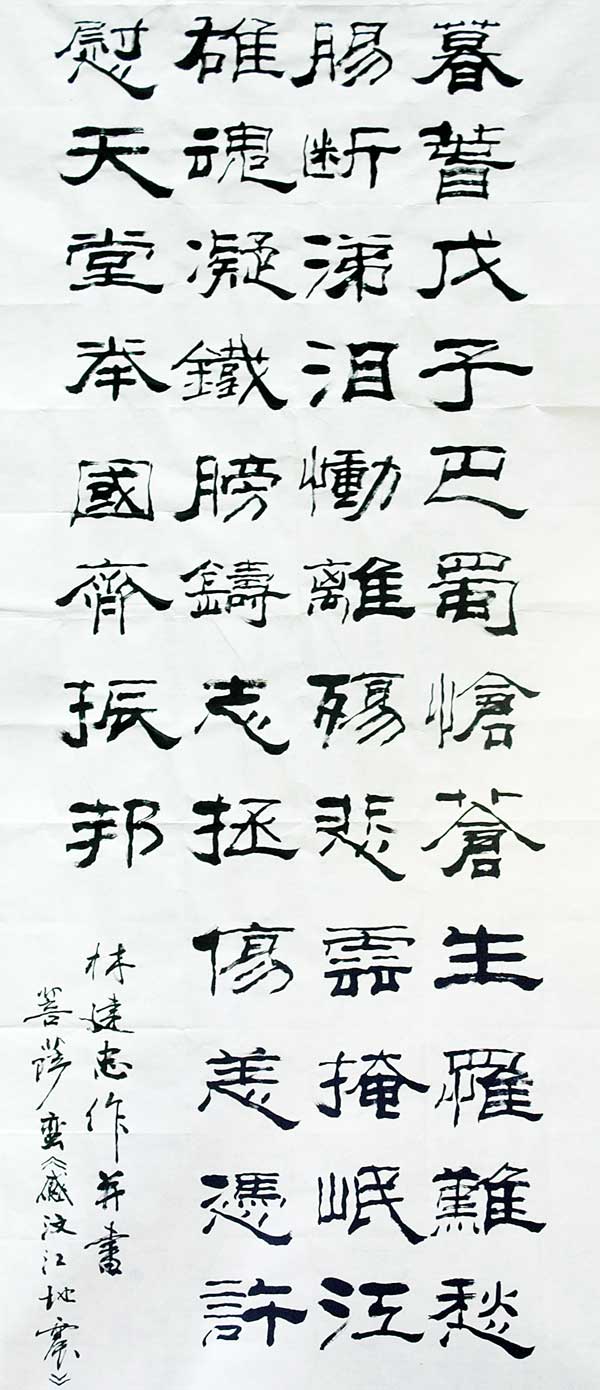 暮萅戊子巴蜀愴蒼生罹難愁
腸断涕泪慟離殤悲雲掩岷江
雄魂凝鐵膀鑄志拯傷恙憑許
慰天堂举國齊振邦
林建忠作并書
菩萨蛮《感汶江地震》